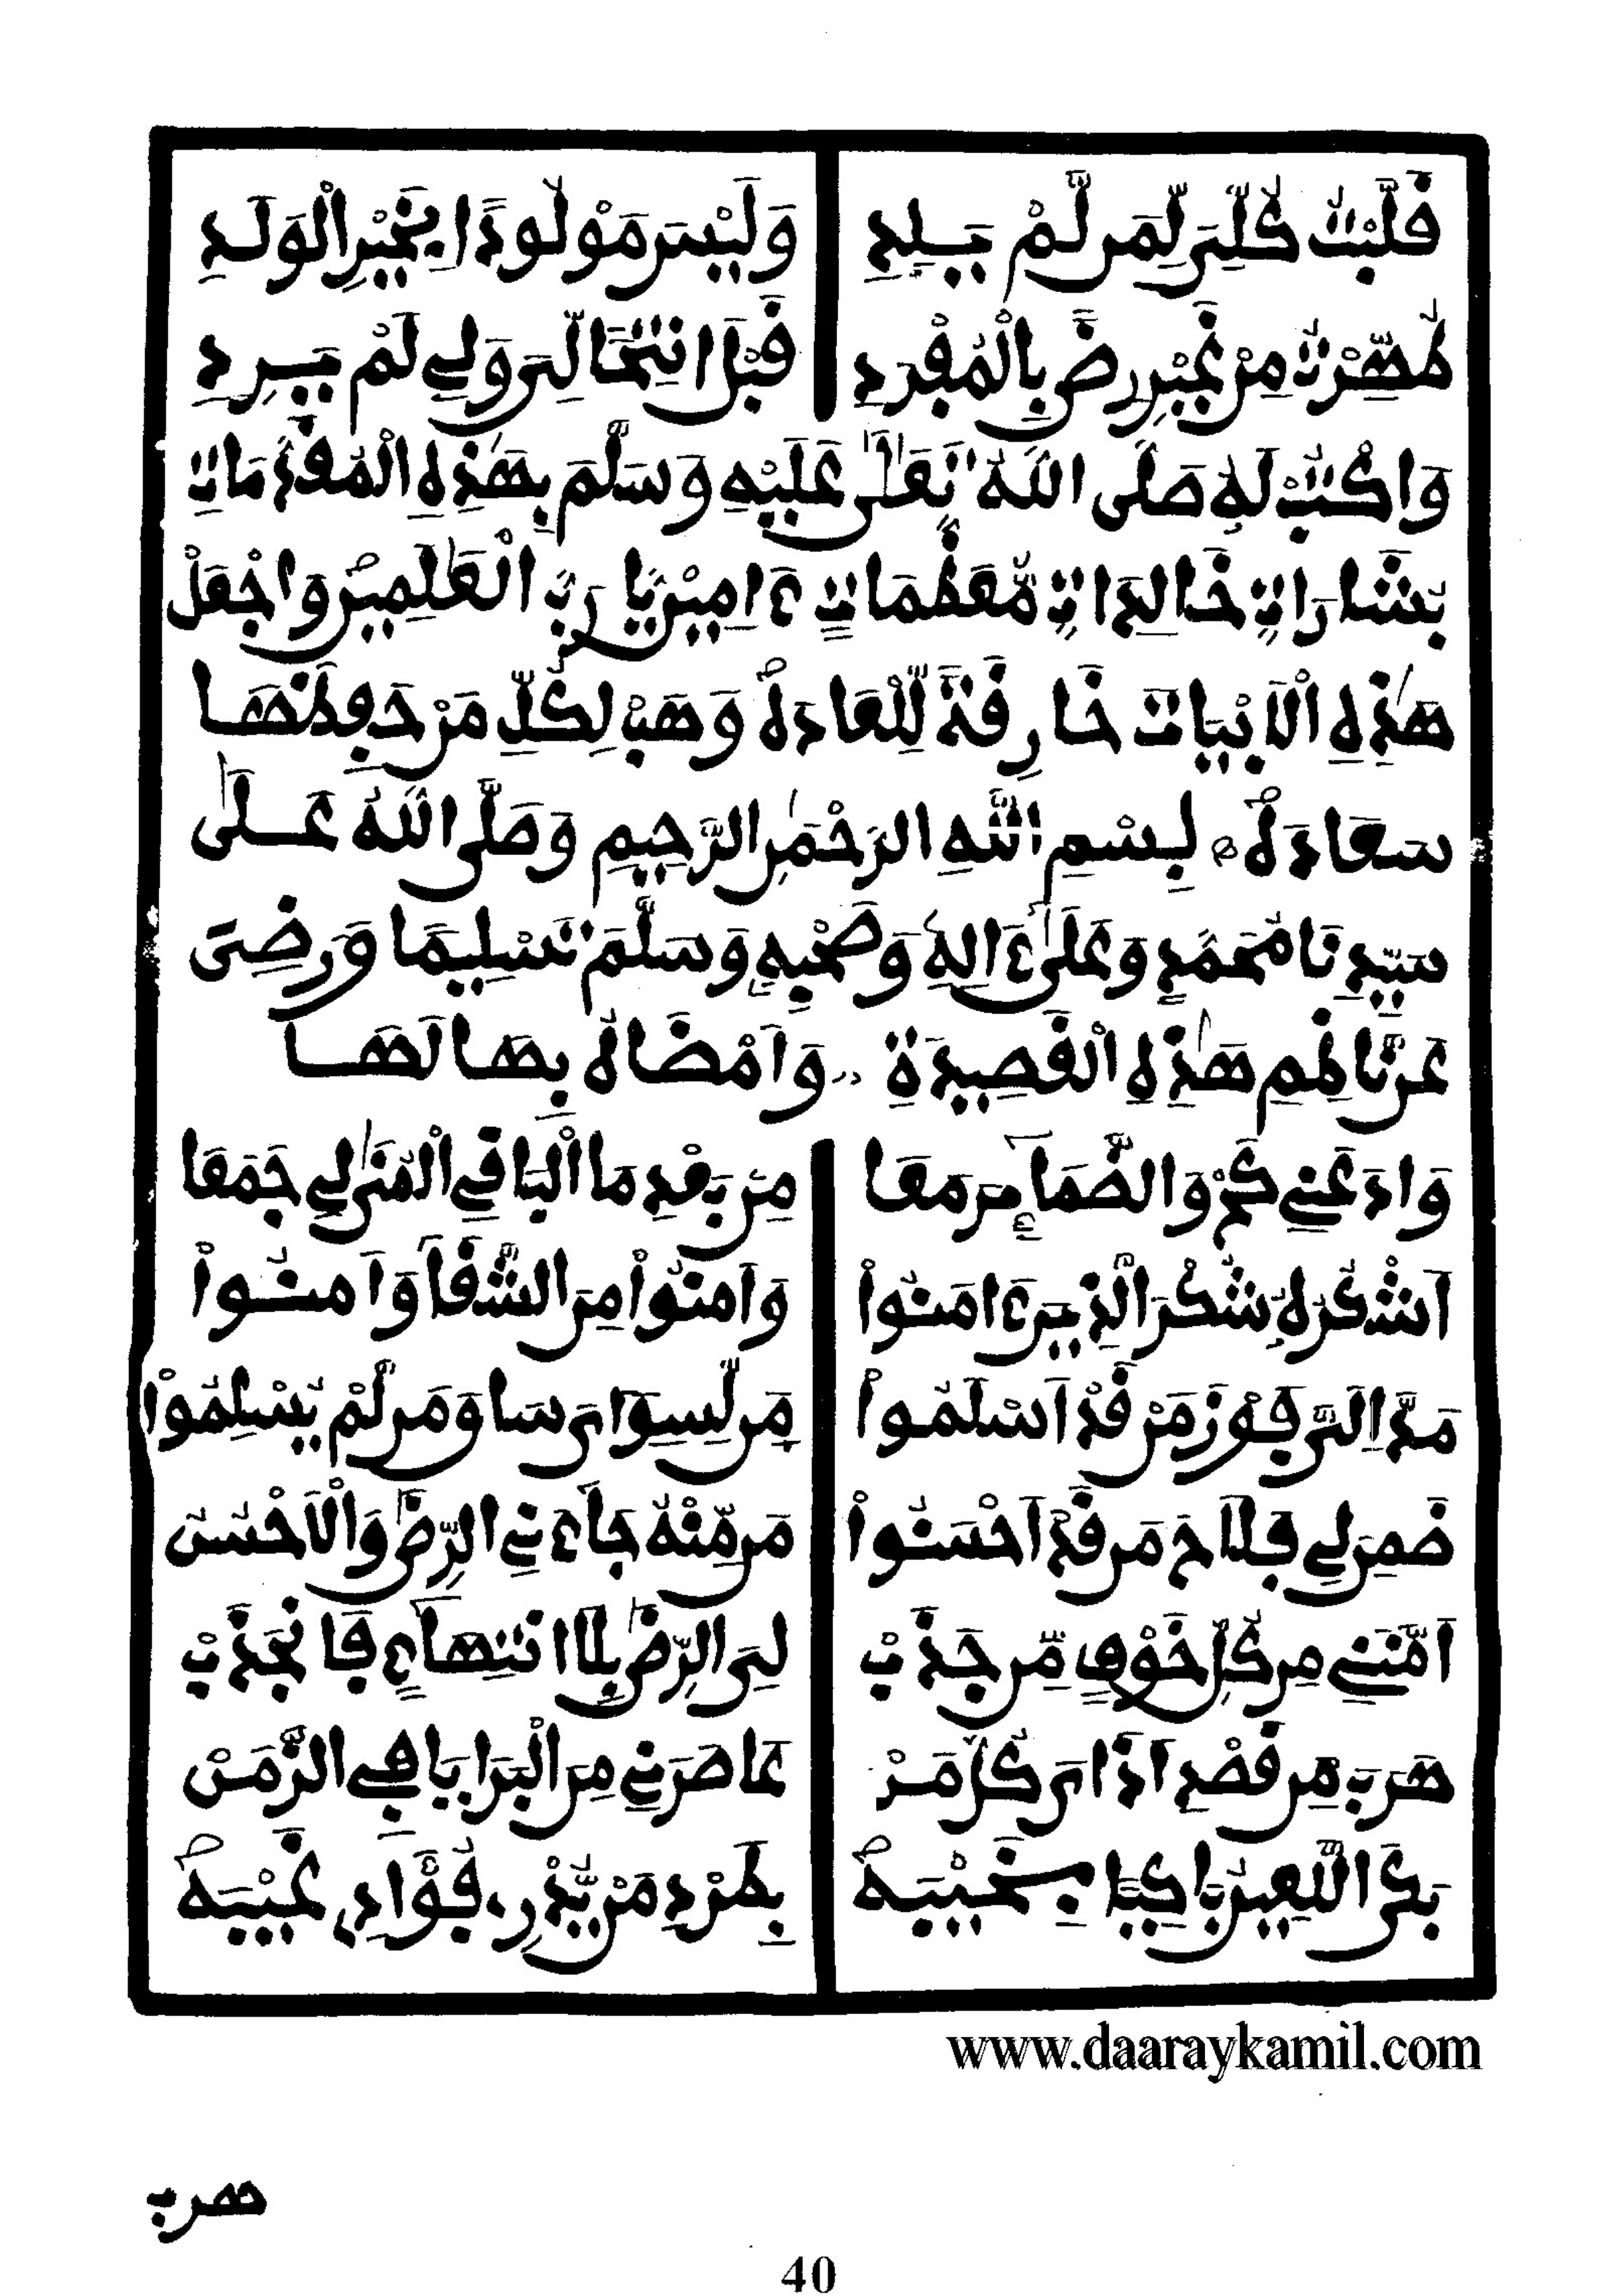 قَلَّبْتَ كُلِّىَ لِمَن لَّمْ يَلِدِ وَلَيْسَ مَوْلُودًا بِخَيْرِ الْوَلَدِ
طُهِّرْتُ مِنْ غَيْرِ رِضًى بِالْمُفْرَدِ قَبْلَ انتِحَالِى وَلِى لَمْ يَرِدِ
وَاكْتُبْ لَهُ صَلَّى اللَّهُ تَعَلَىٰ عَلَيْهِ وَسَلَّمَ بِهَٰذِهِ الْمُقَدِّمَاتِ
بِشَارَاتٍ خَالِدَاتٍ مُّعَظَّمَاتٍ ءَامِينْ يَا رَبَّ الْعَٰلَمِينَ وَاجْعَلْ
هَٰذِهِ الْأَبْيَاتَ خَارِقَةً لِّلْعَادَةْ وَهَبْ لِكُلِّ مَنْ حَفِظَهَا
سَعَادَةْ بِسْمِ اللَّهِ الرَّحْمَٰنِ الرَّحِيمِ وَصَلَّى اللَّهُ عَلَىٰ
سَيِّدِنَا مُحَمَّدٍ وَعَلَىٰ ءَالِهِ وَصَحْبِهِ وَسَلَّمَ تَسْلِيمًا وَرَضِىَ
عَن نَّاظِمِ هَٰذِهِ الْقَصِيدَةِ وَأَمْضَاهُ بِهَا لَهَا
وَادَعَنِى كُمْ وَالظَّمَآءِ مَن مَعَا مِن بَعْدِ مَا الْبَاقِى الْمُنَىٰ لِى جَمَعَا
أَشْكُرُهُ شُكْرَ الَّذِينَ ءَامَنُواْ وَأَمِنُواْ مِنَ الشَّقَا وَأَمَّنُواْ
مَدَّ إِلَىَّ فَوْزَ مَنْ قَدْ أَسْلَمُواْ مَن لِّسِوَاىَ سَا وَمَن لَّمْ يُسْلِمُواْ
ضَمِنَ لِى فَلَاحَ مَن قَدْ أَحْسَنُواْ مَن مِّنْهُ جَآءَنِى الرِّضَىٰ وَالْأَحْسَنُ
أَمَّنَنِى مِن كُلِّ خَوْفٍ مَّن جَذَبْ لِىَ الرِّضَىٰ بِلَا انتِهَآءٍ فَانجَذَبْ
هَرَبَ مِن قَصْدِ أَذَاىَ كُلُّ مَنْ عَاصَرَنِى مِنَ الْبَرَايَا فِى الزَّمَنْ
بَكَى اللَّعِينُ بَاكِيًا بِخَيْبَهْ بِطَرْدِ مَنْ يَّذْرِ فُؤَادِ غَيْبَهْ
www.daaraykamil.com
هرب
40